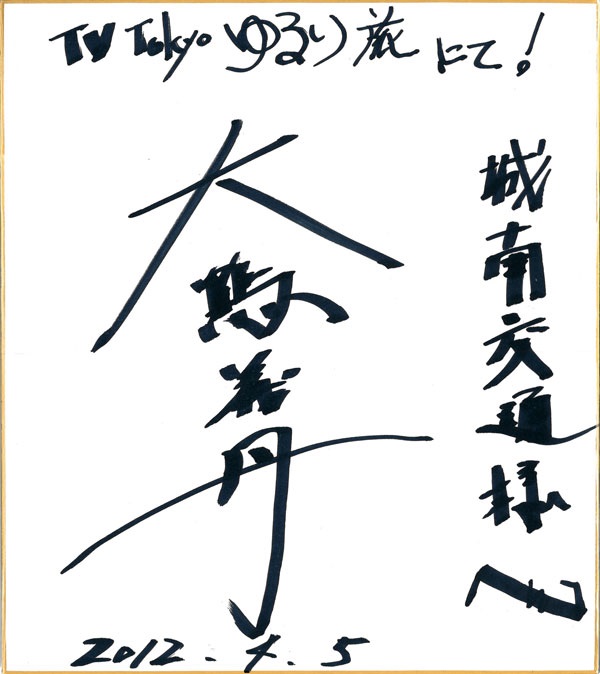 TV Tokyo ゆるり旅 にて!
城南交通様へ
大鶴義丹
2012.4.5